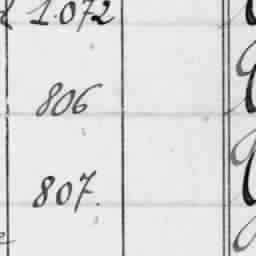 1.072
806
807.